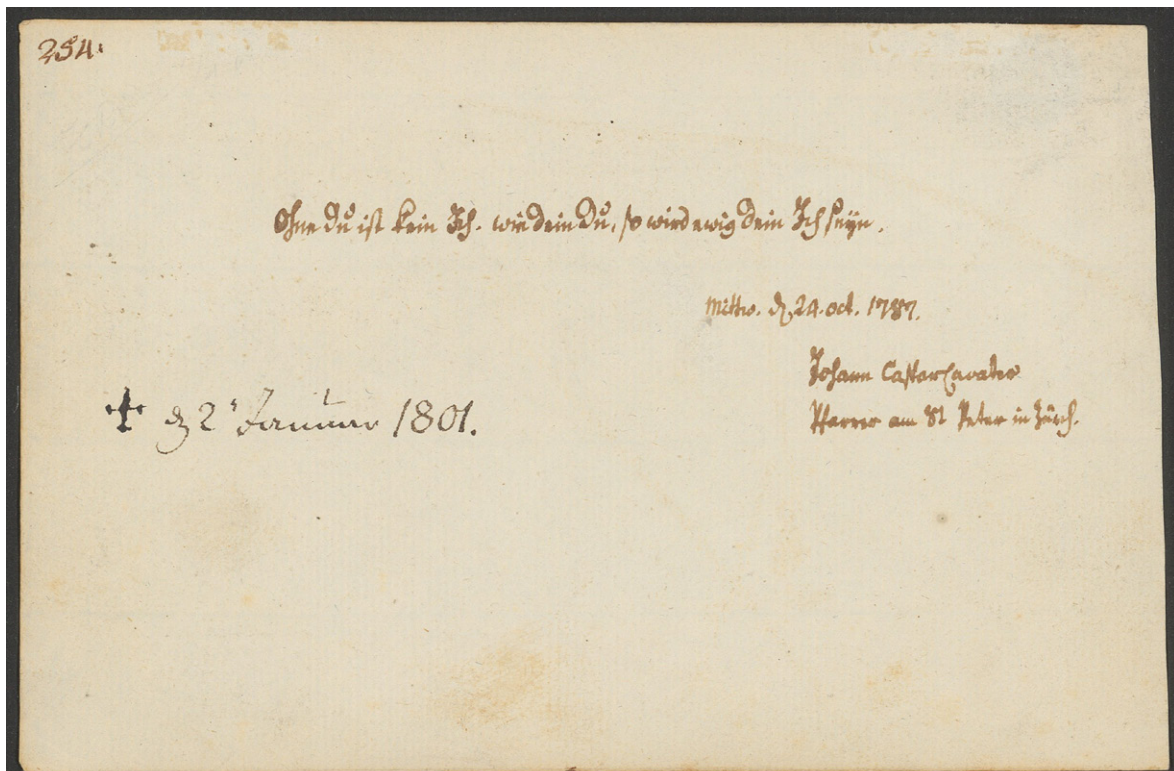 254.
Ohne Du ist kein Ich. wie dein Du, so wird ewig dein Ich seyn.
Mittw. dẽ 24. oct. 1787.
Johann Caspar Lavater
Pfarrer am St Peter in Zürch.
✝ dẽ 2ᵗ Januar 1801.